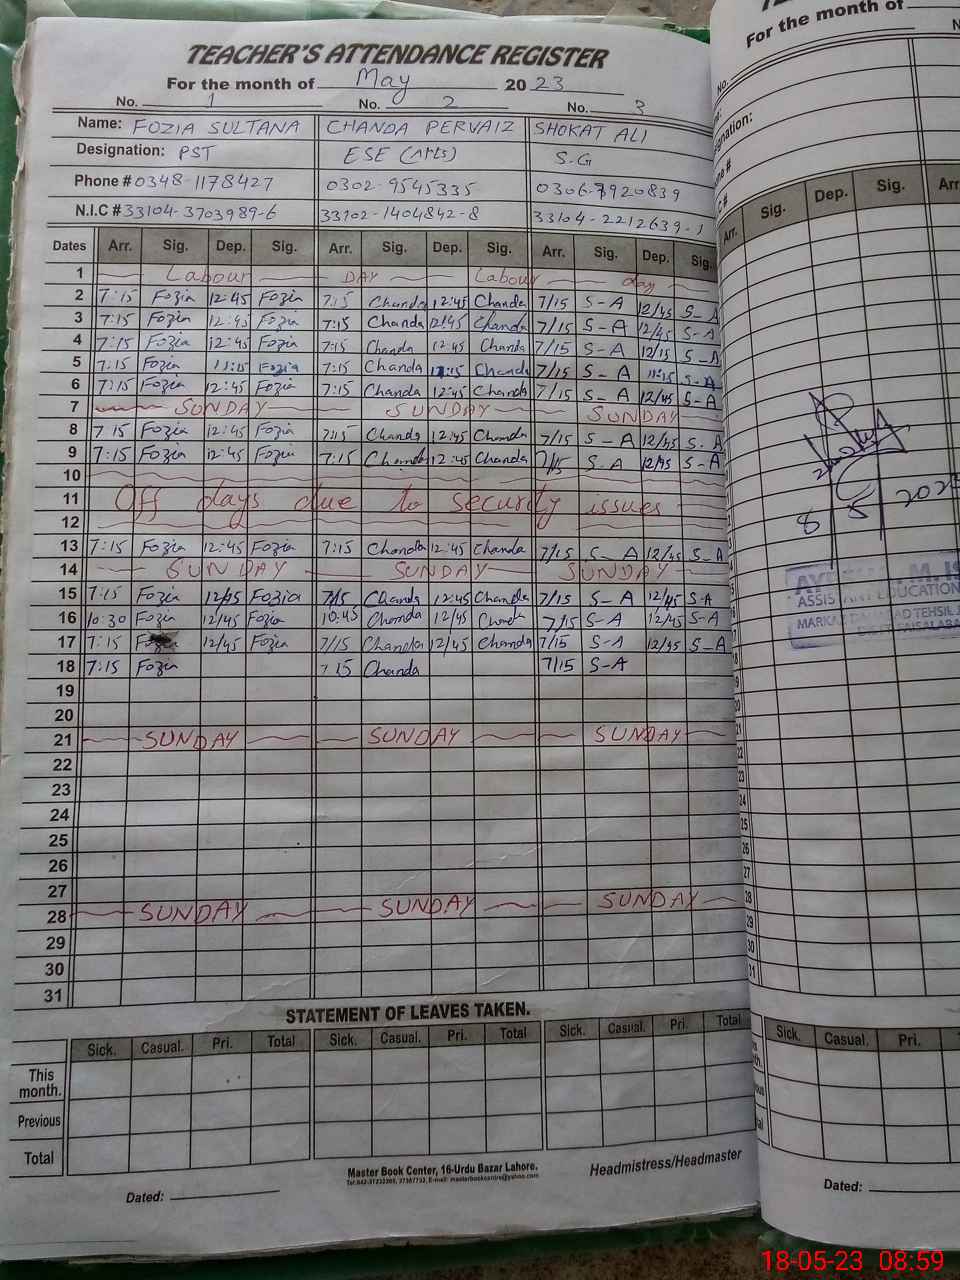 TEACHER'S ATTENDANCE REGISTER
For the month of May 2023
No. 1 No. 2 No. 3
Name: FOZIA SULTANA CHANDA PERVAIZ SHOKAT ALI
Designation: PST ESE (Arts) S.G
Phone # 0348-1178427 0302-9545335 0306-7920839
N.I.C # 33104-3703989-6 33102-1404842-8 33104-2212639-1
Dates Arr. Sig. Dep. Sig. Arr. Sig. Dep. Sig. Arr. Sig. Dep. Sig.
1 Labour DAY Labour day
2 7:15 Fozia 12:45 Fozia 7:15 Chanda 12:45 Chanda 7/15 S-A 12/45 S-A
3 7:15 Fozia 12:45 Fozia 7:15 Chanda 12/45 Chanda 7/15 S-A 12/45 S-A
4 7:15 Fozia 12:45 Fozia 7:15 Chanda 12:45 Chanda 7/15 S-A 12/15 S-A
5 7:15 Fozia 11:15 Fozia 7:15 Chanda 11:15 Chanda 7/15 S-A 11:15 S-A
6 7:15 Fozia 12:45 Fozia 7:15 Chanda 12:45 Chanda 7/15 S-A 12/45 S-A
7 SUNDAY SUNDAY SUNDAY
8 7:15 Fozia 12:45 Fozia 7:15 Chanda 12:45 Chanda 7/15 S-A 12/45 S-A
9 7:15 Fozia 12:45 Fozia 7:15 Chanda 12:45 Chanda 7/15 S-A 12/45 S-A
10
11 Off days due to security issues
12
13 7:15 Fozia 12:45 Fozia 7:15 Chanda 12:45 Chanda 7/15 S-A 12/45 S-A
14 SUNDAY SUNDAY SUNDAY
15 7:15 Fozia 12/45 Fozia 7/15 Chanda 12:45 Chanda 7/15 S-A 12/45 S-A
16 10:30 Fozia 12/45 Fozia 10:45 Chanda 12/45 Chanda 7/15 S-A 12/45 S-A
17 7:15 Fozia 12/45 Fozia 7/15 Chanda 12/45 Chanda 7/15 S-A 12/45 S-A
18 7:15 Fozia 7:15 Chanda 7/15 S-A
19
20
21 SUNDAY SUNDAY SUNDAY
22
23
24
25
26
27
28 SUNDAY SUNDAY SUNDAY
29
30
31
STATEMENT OF LEAVES TAKEN.
Sick. Casual. Pri. Total Sick. Casual. Pri. Total Sick. Casual. Pri. Total
This month.
Previous
Total
Master Book Center, 16-Urdu Bazar Lahore.
Headmistress/Headmaster
Dated:
For the month of
No.
Arr. Sig. Dep. Sig. Arr
8 5 2023
ASSISTANT EDUCATION
Sick. Casual. Pri.
Dated:
18-05-23 08:59